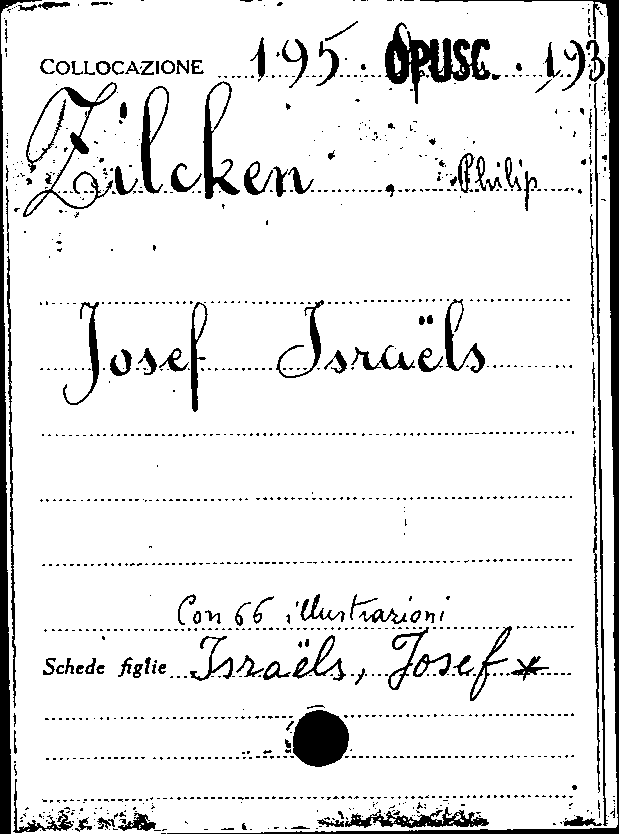 COLLOCAZIONE 195. OPUSC. . 193
Zilcken , Philip
Josef Israëls
Con 66 illustrazioni
Schede figlie Israëls, Josef *